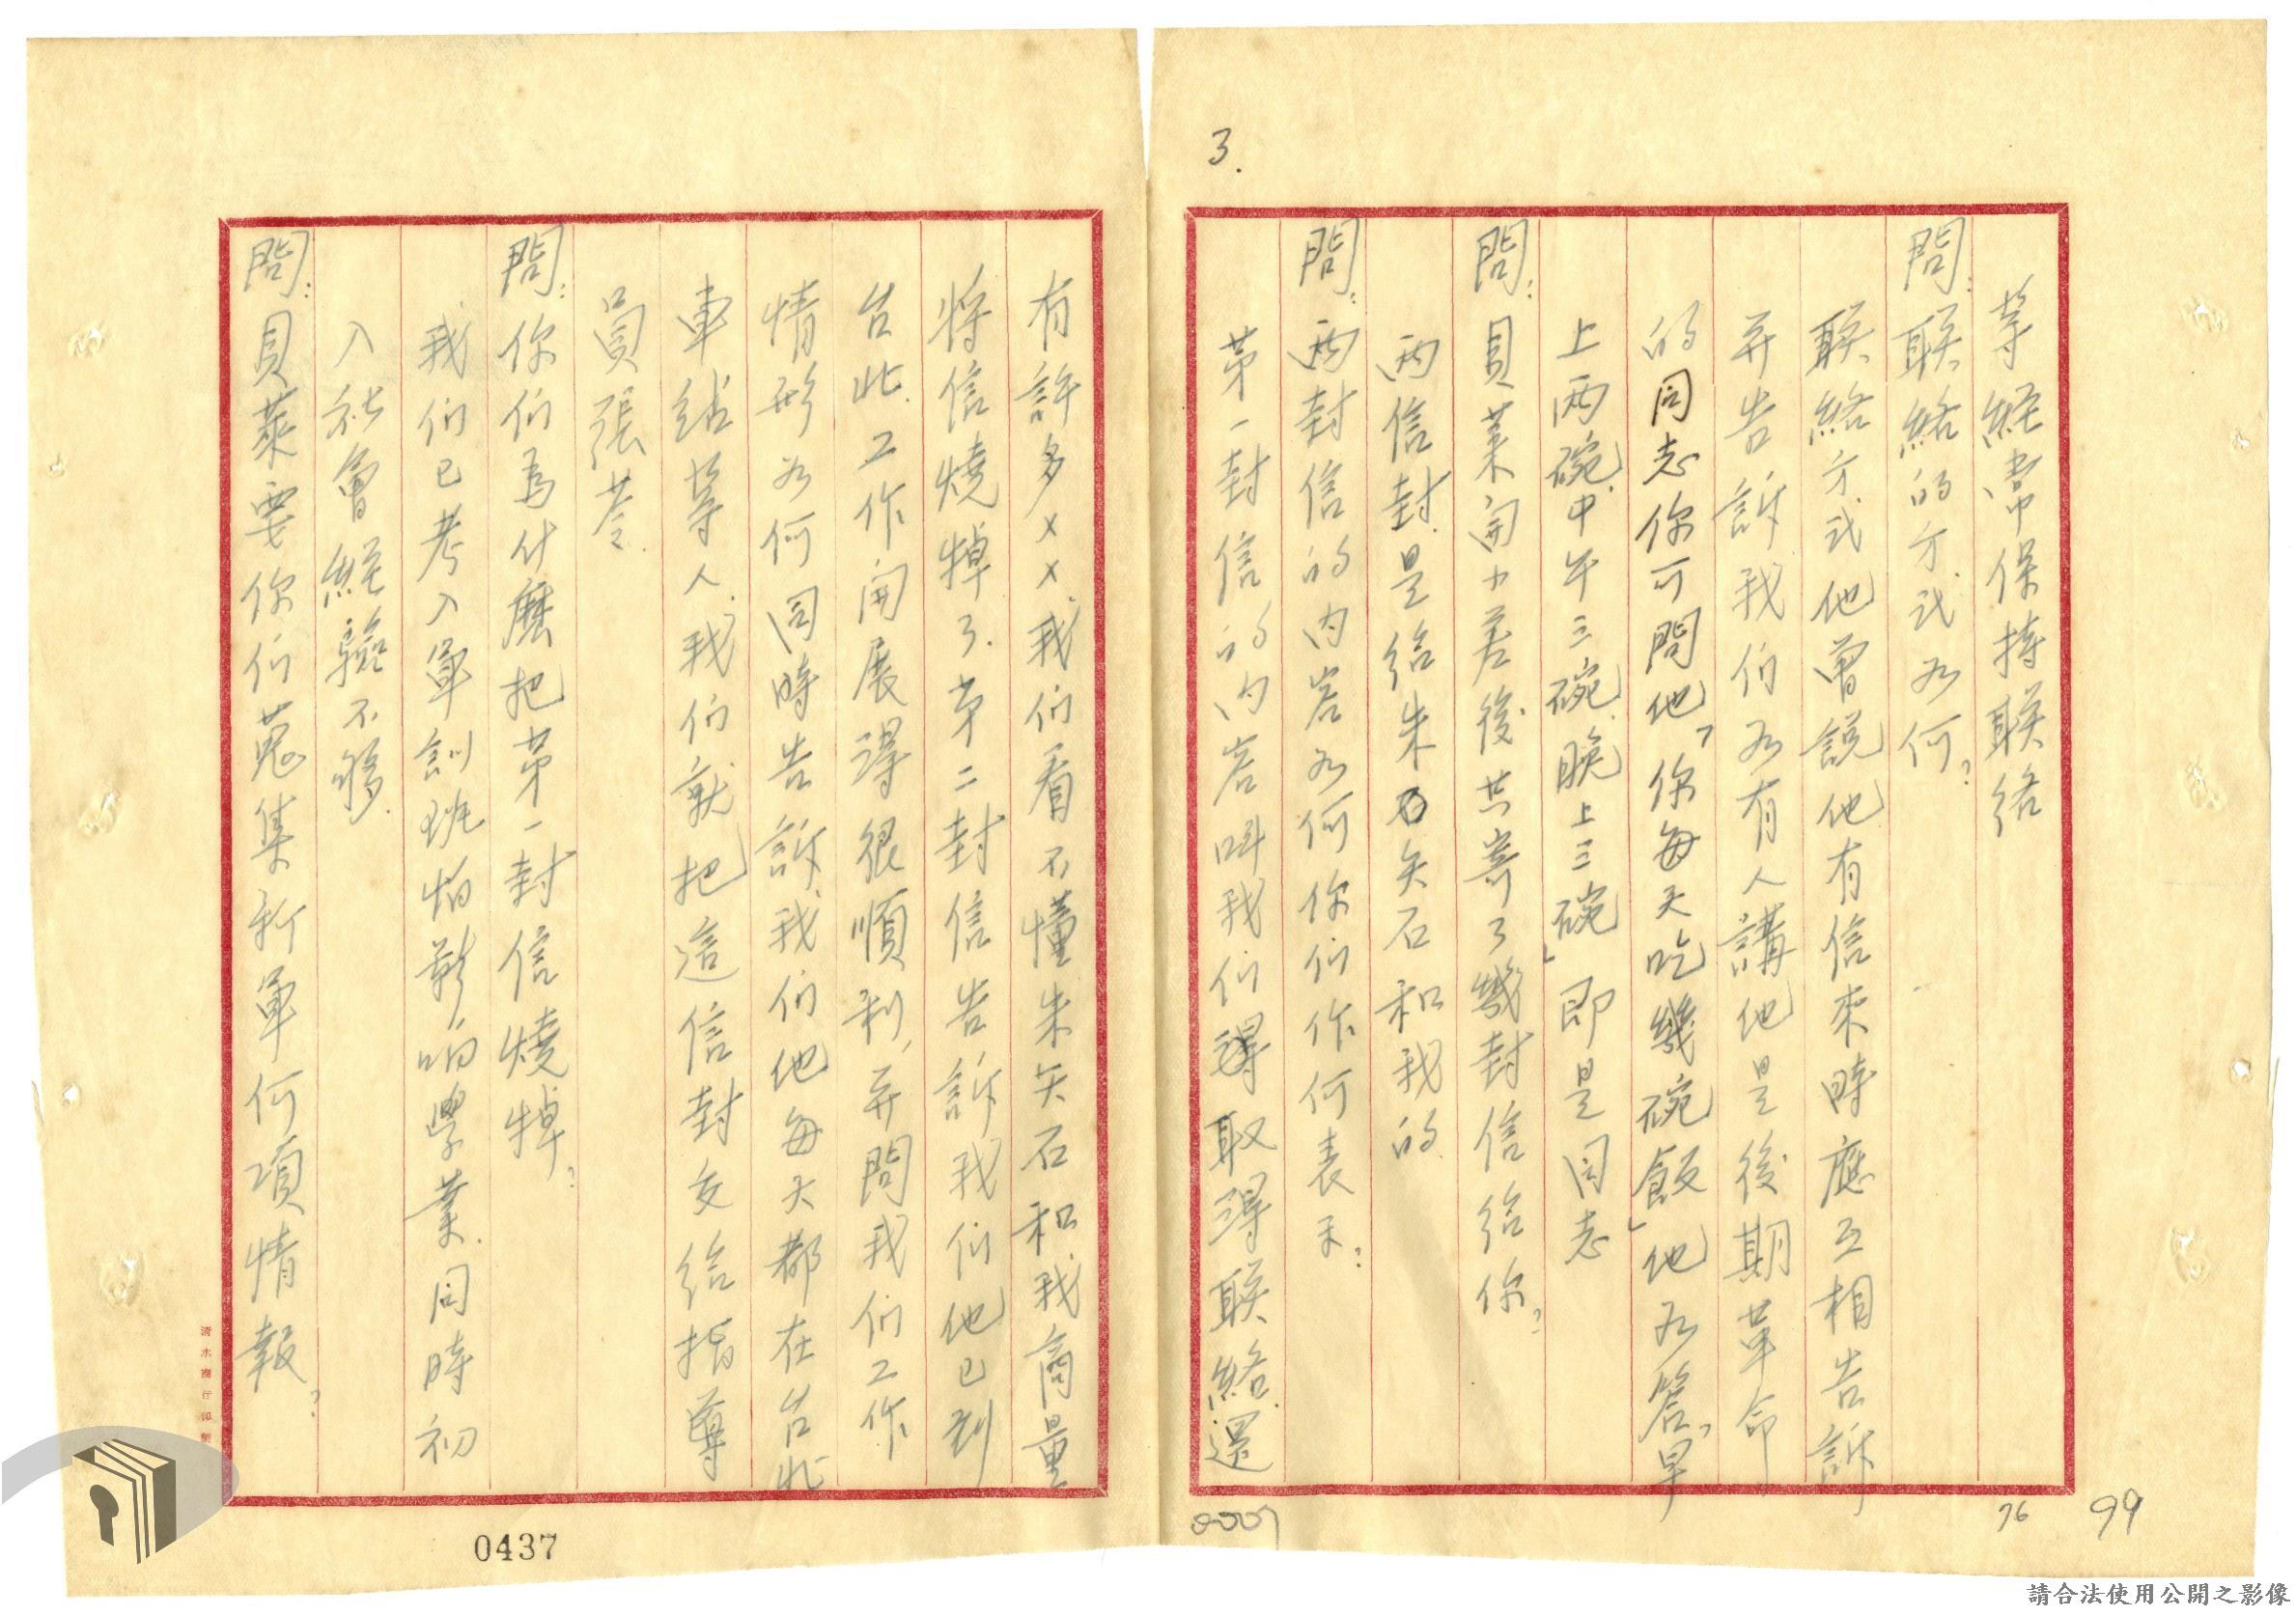 3.
等經常保持联络
問:联絡的方式为何?
联絡方式他曾說他有信來時應互相告訴
并告訴我们为有人講他是後期革命
的同志你可問他「你每天吃幾碗飯」他为答「早
上兩碗.中午三碗.晚上三碗」即是同志
問:員葉開小差後共寄了幾封信给你?
兩信封.是给朱矢石和我的.
問:兩封信的内容为何你们作何表示?
第一封信的内容叫我们得取得联絡.還
有許多××.我们看不懂朱矢石和我商量
将信燒掉了.第二封信告訴我们他已到
台北.工作開展得很順利,并問我们工作
情形为何同時告訴我们他每天都在台北
車站等人.我们就把這信封交给指導
員張苓.
問:你们為什麼把第一封信燒掉?
我们已考入軍訓班怕影响學業.同時初
入社會經驗不够.
問:員葉要你们蒐集新軍何項情報?
0437
76
99
請合法使用公開之影像